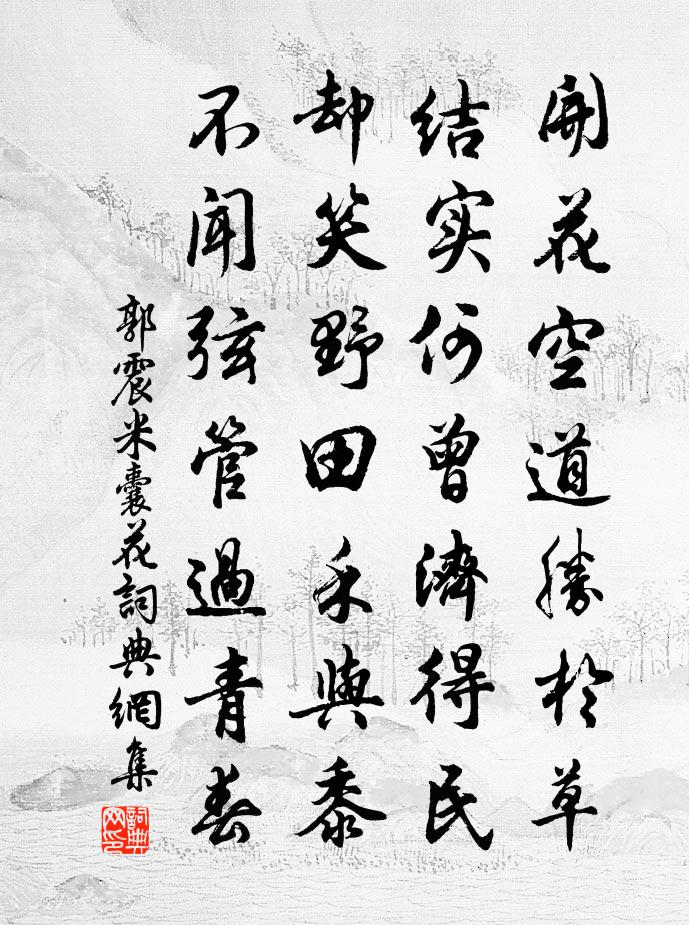 開花空道勝於草
結实何曾濟得民
却笑野田禾與黍
不聞弦管過青春
郭震米囊花詞典網集
詞典网印